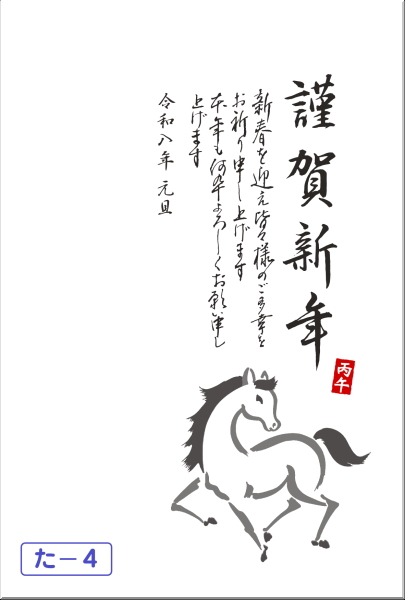 謹賀新年
新春を迎え皆々様のご多幸を
お祈り申し上げます
本年も何卒よろしくお願い申し
上げます
令和八年 元旦
丙午
た－４